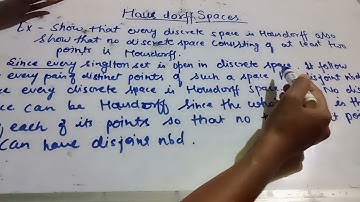 Hausdorff Spaces
Ex - Show that every discrete space is Hausdorff also
show that no discrete space consisting of at least two
points is Hausdorff.
Since every singlton set is open in discrete space. It follow
every pair of distinct points of such a space disjoint nbd
ce every discrete space is Hausdorff Space No dis
ce can be Hausdorff Since the who is th
of each of its points so that no t points
Can have disjoint nbd.